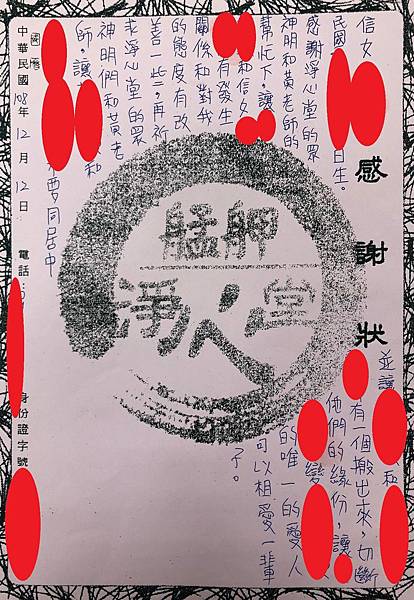 感謝狀
信女
民國 日生。
感謝淨心堂的眾
神明和黃老師的
幫忙下,讓
和信女
有發生
關係和對我
的態度有改
善一些,再祈
求淨心堂的眾
神明們和黃老
師,讓 和
不要同居中
並讓 和
有一個搬出來,切斷
他們的緣份,讓
變
的唯一的愛人
可以相愛一輩
子了。
艋舺
淨心堂
中華民國108年12月12日 電話 身份證字號